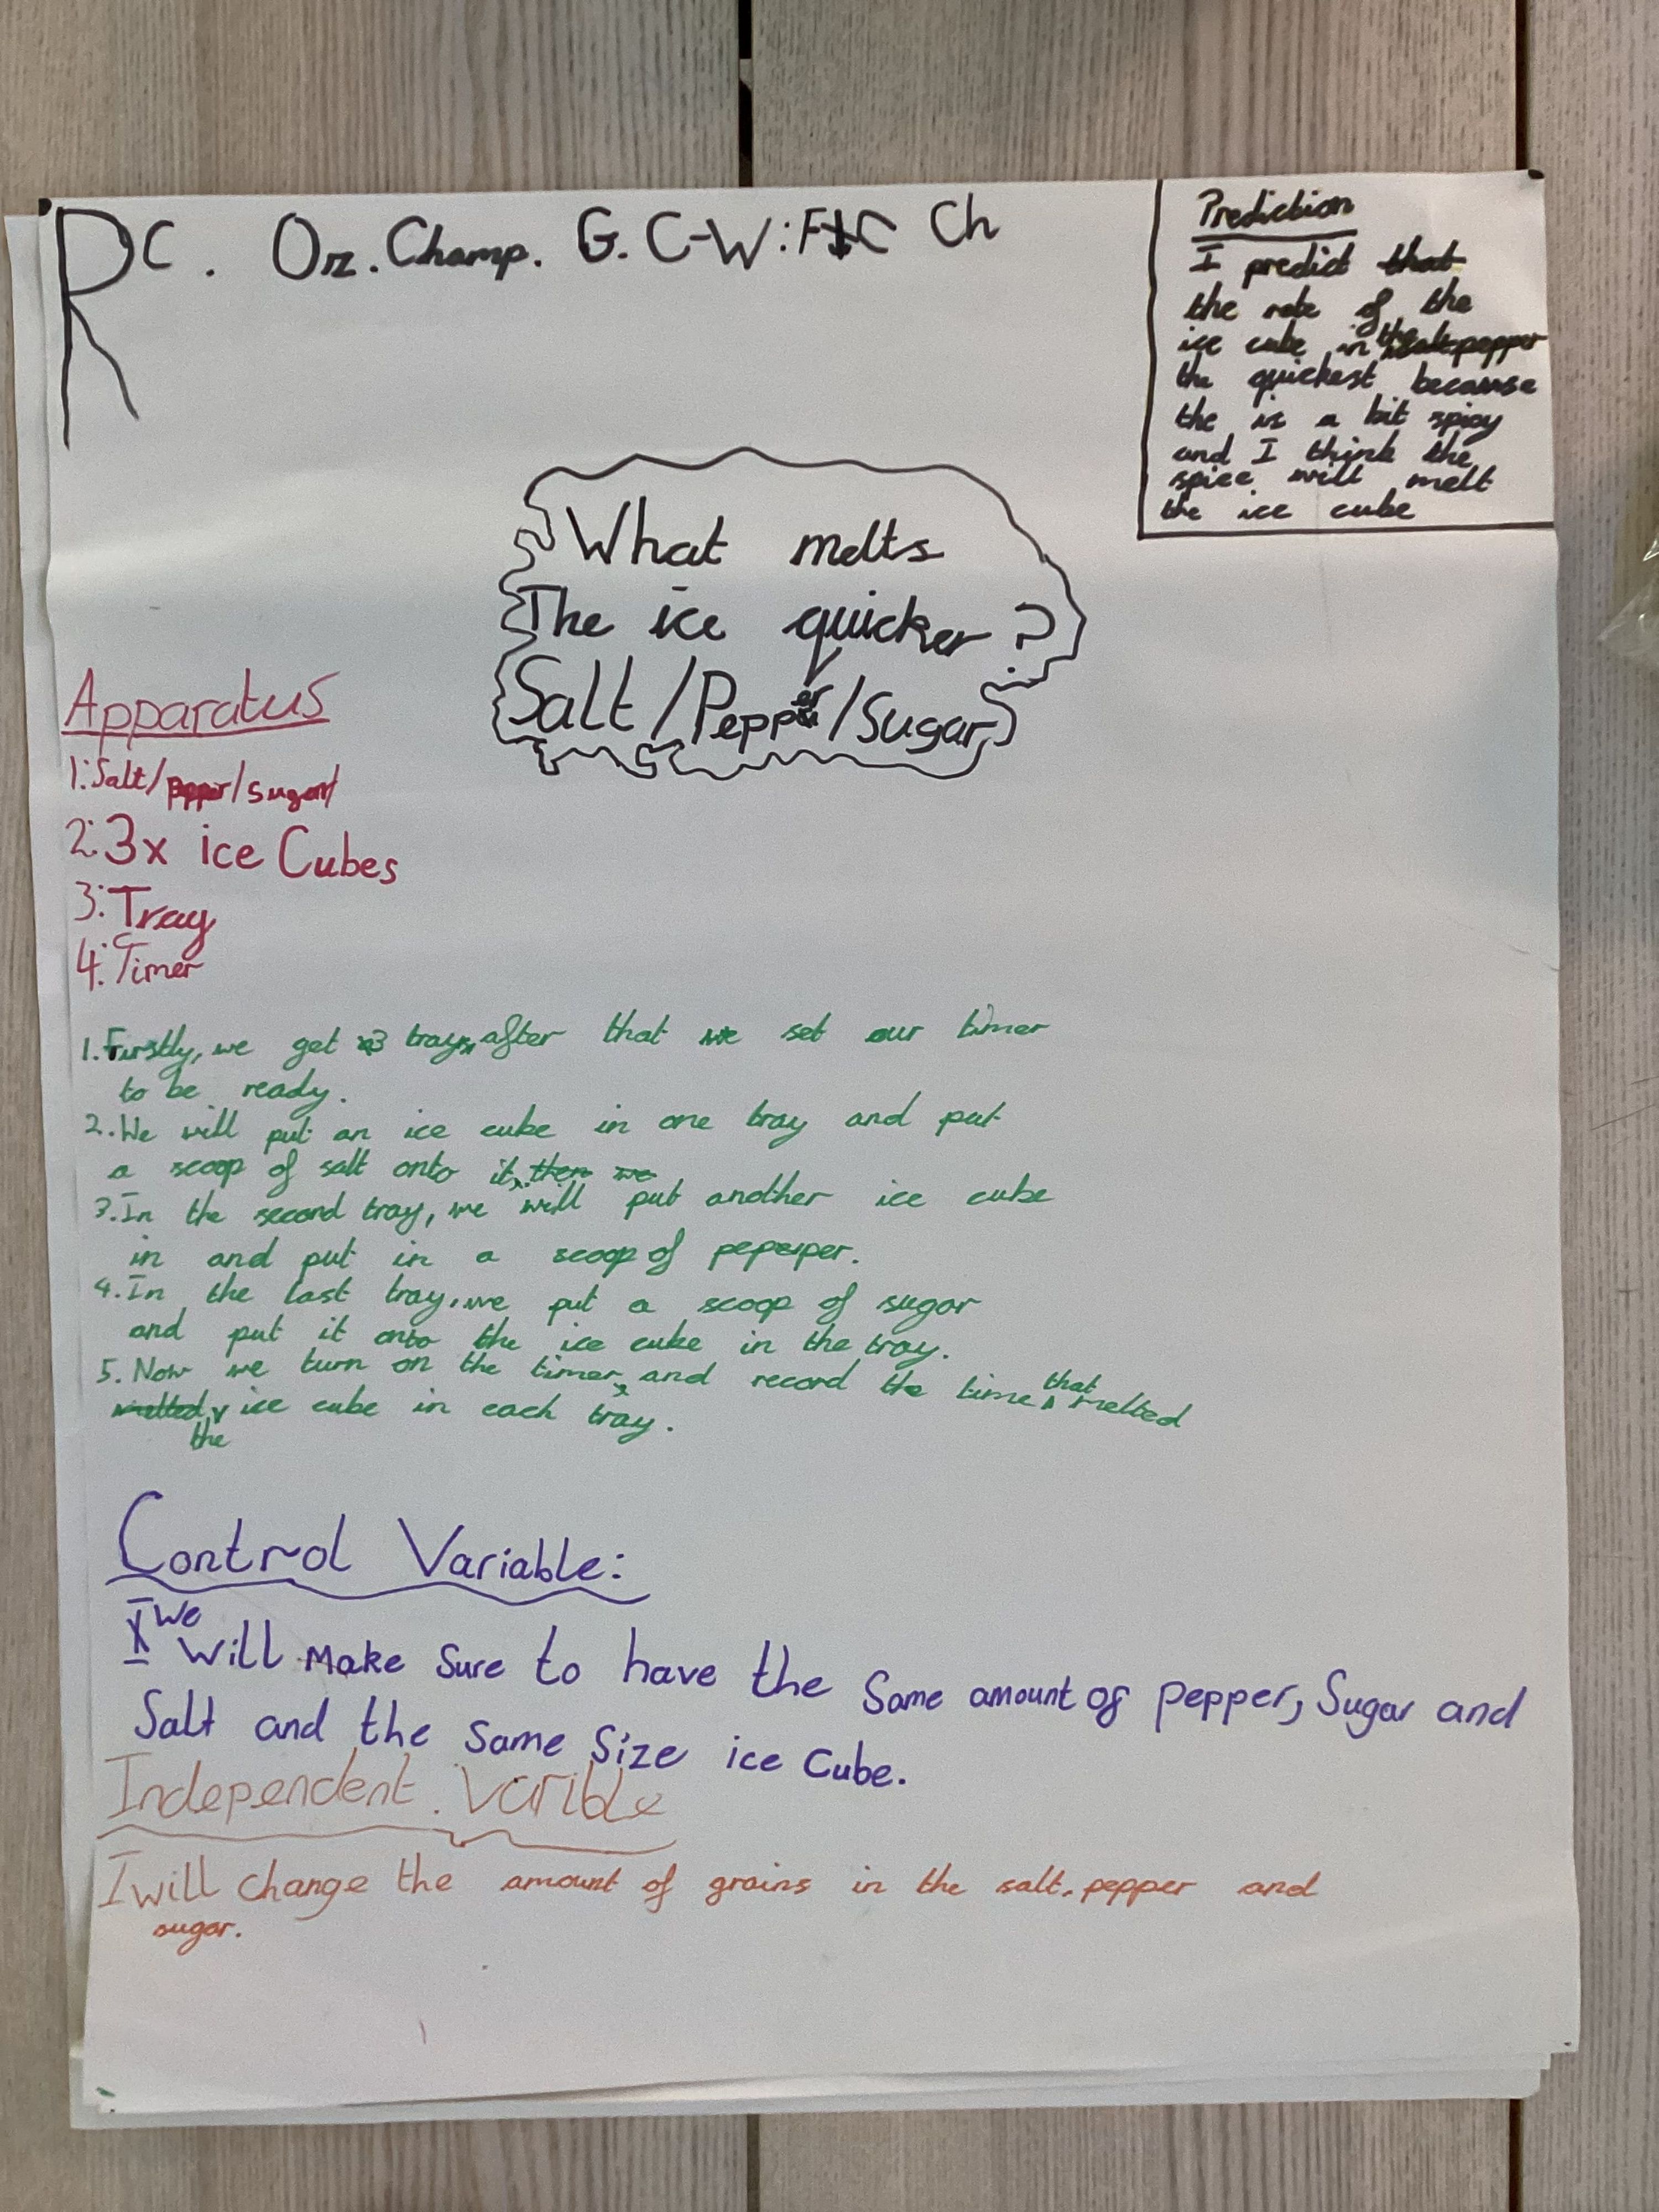 Rc. Oz. Champ. G. C-W: F+C Ch
Prediction
I predict that
the rate of the
ice cube in the pepper
the quickest because
the is a bit spicy
and I think the
spice will melt
the ice cube
What melts
The ice quicker?
Salt/Pepper/Sugar
Apparatus
1: Salt/pepper/sugar
2: 3x ice Cubes
3: Tray
4: Timer
1. Firstly, we get 3 trays, after that we set our timer
to be ready.
2. We will put an ice cube in one tray and put
a scoop of salt onto it. then we
3. In the second tray, we will put another ice cube
in and put in a scoop of pepeper.
4. In the last tray, we put a scoop of sugar
and put it onto the ice cube in the tray.
5. Now we turn on the timer, and record the time that melted
melted the ice cube in each tray.
Control Variable:
I We will make sure to have the same amount of pepper, sugar and
Salt and the same size ice cube.
Independent. Varible
I will change the amount of grains in the salt, pepper and
sugar.